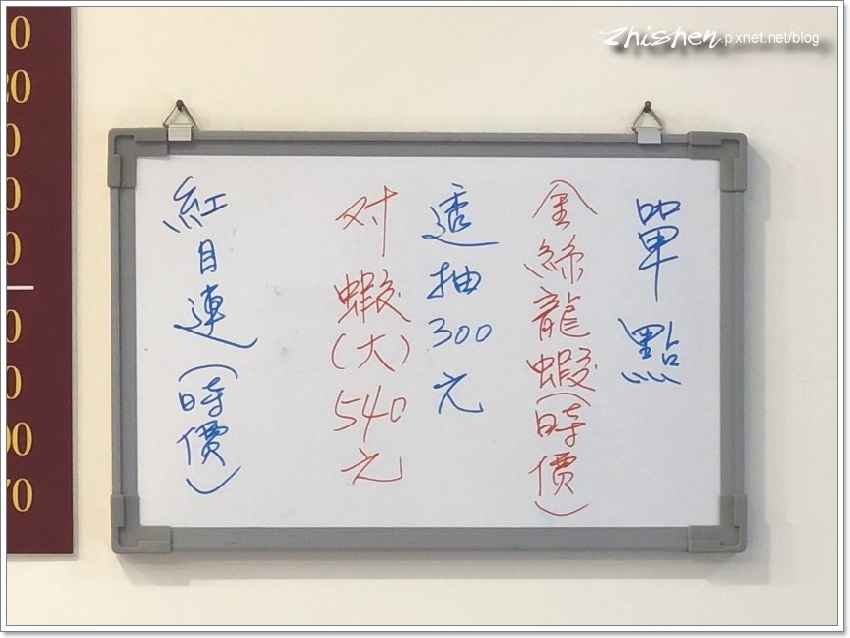 zhishen.pixnet.net/blog
單點
金絲龍蝦(時價)
透抽300元
对蝦(大)540元
紅目連(時價)
0
20
0
0
0
0
0
00
70